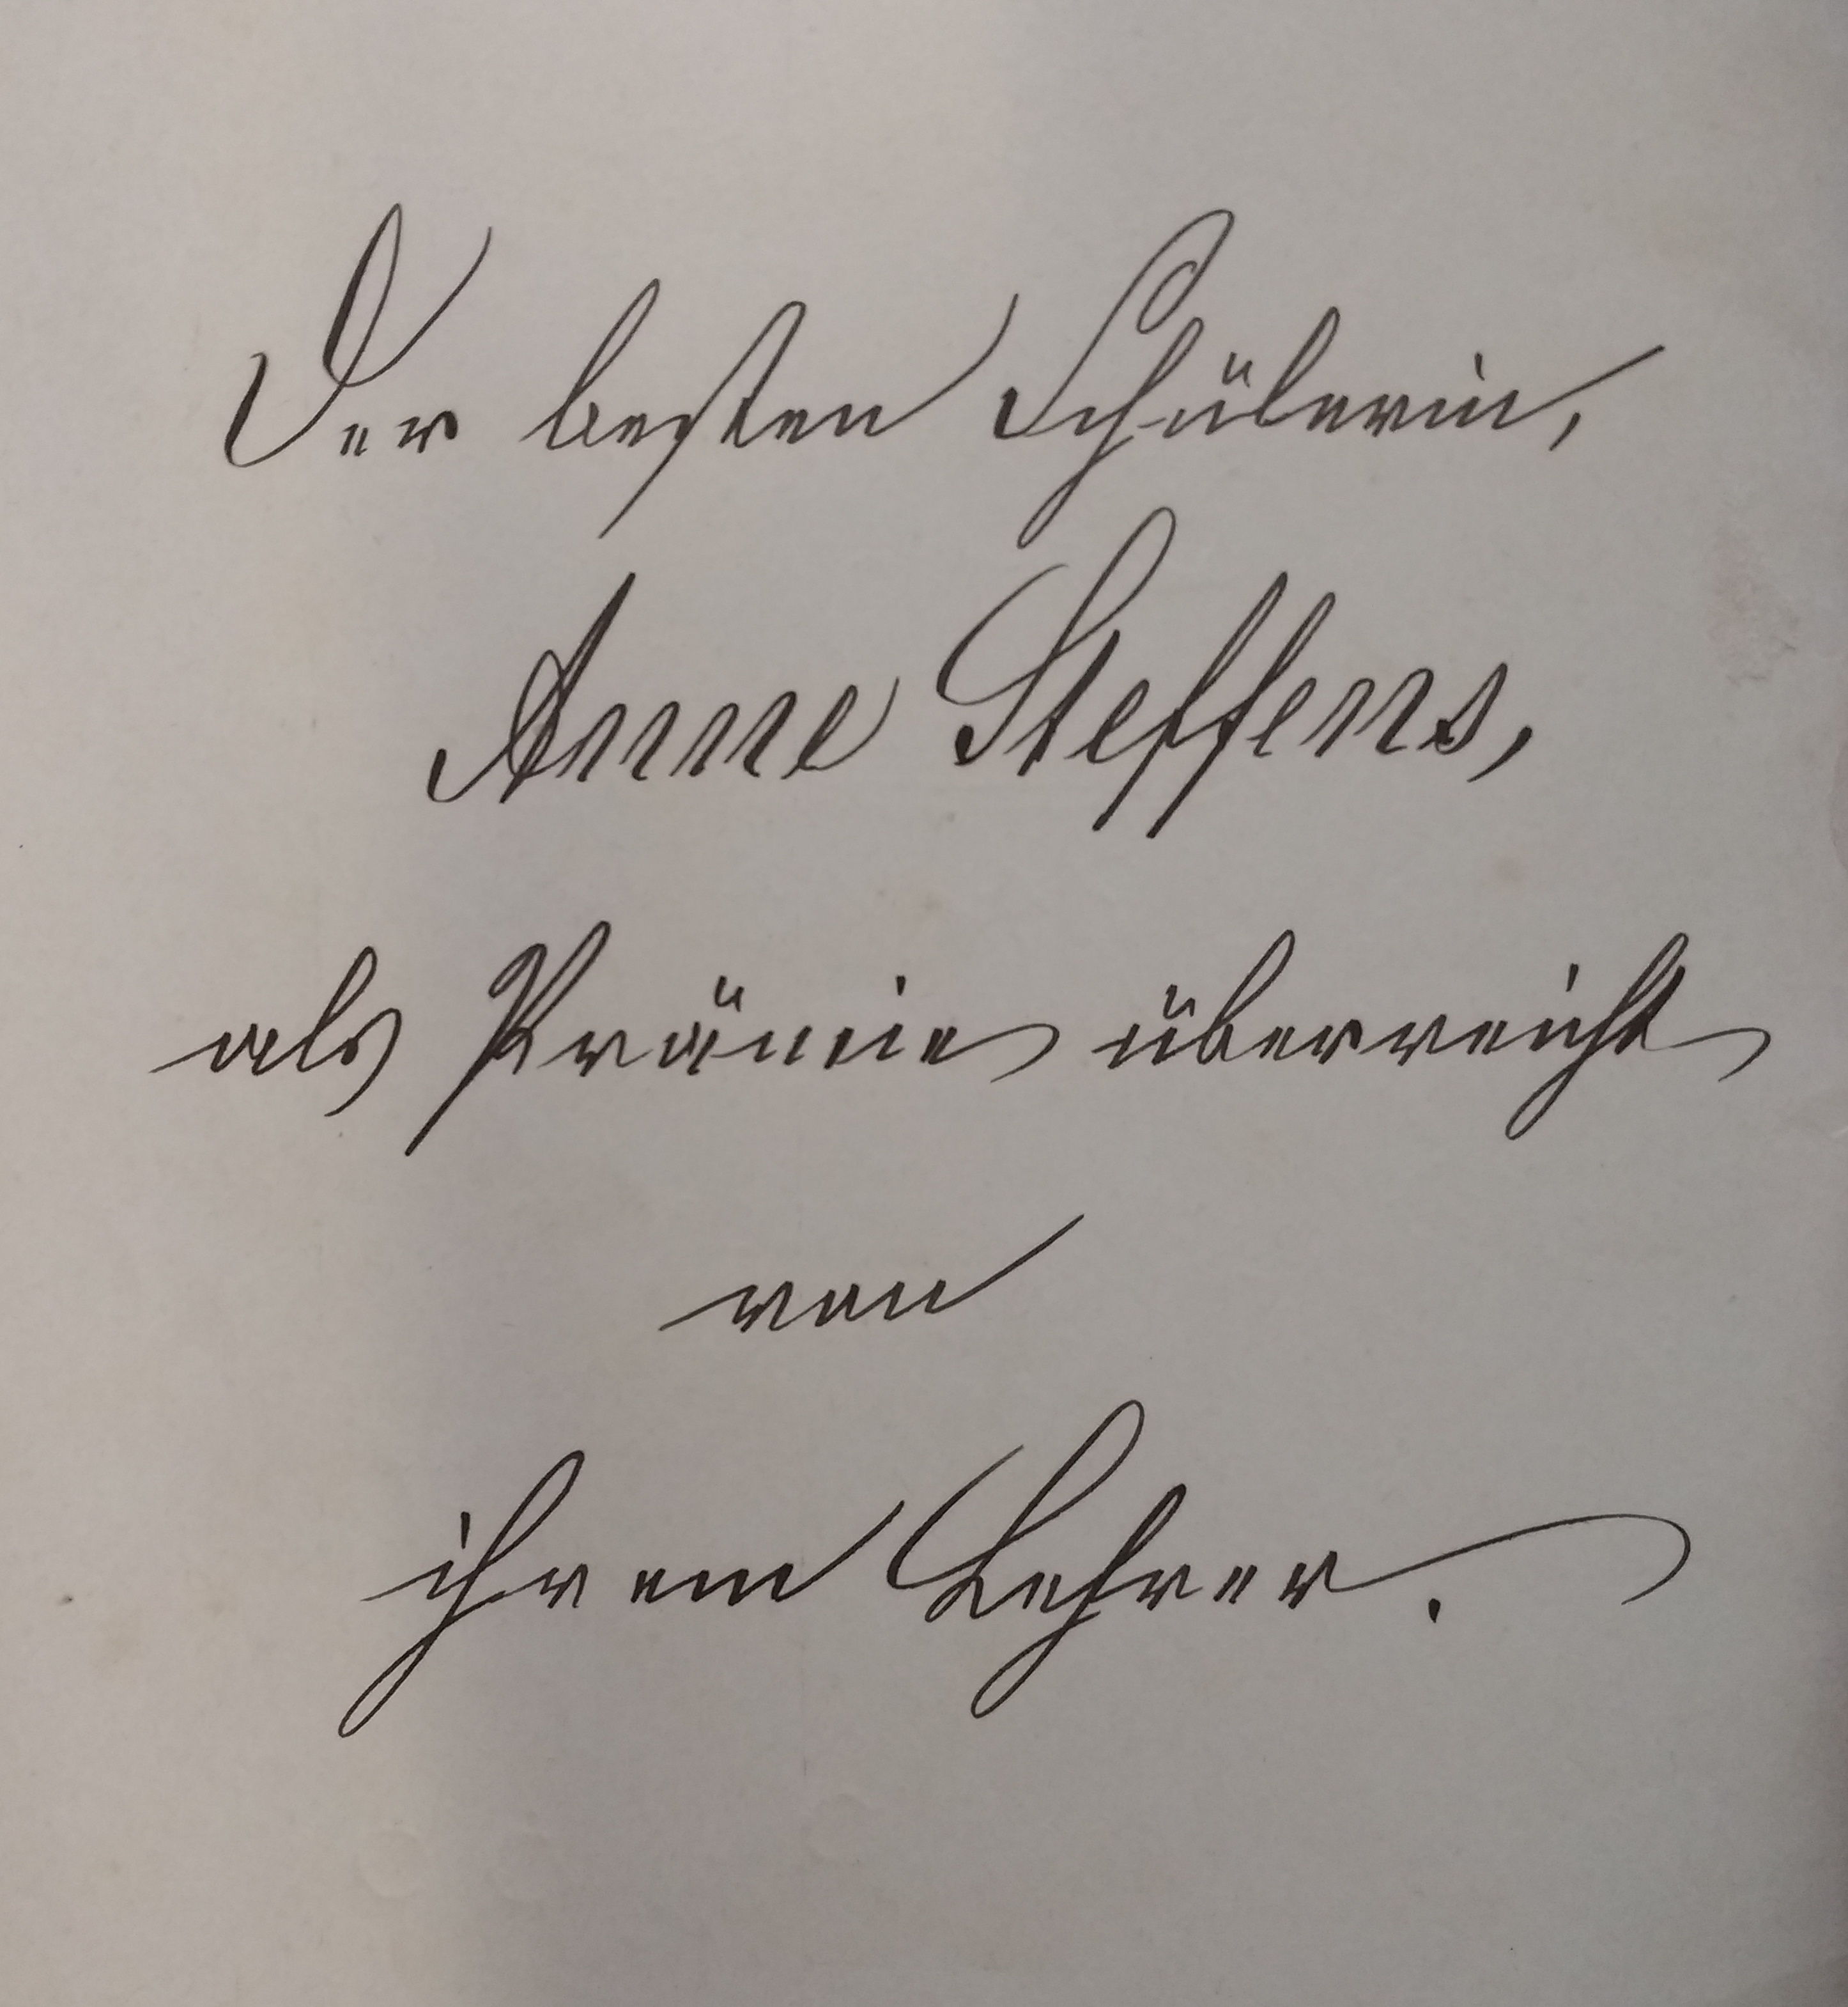 Der besten Schülerin,
Anne Steffens,
als Prämie überreicht
von
ihrem Lehrer.